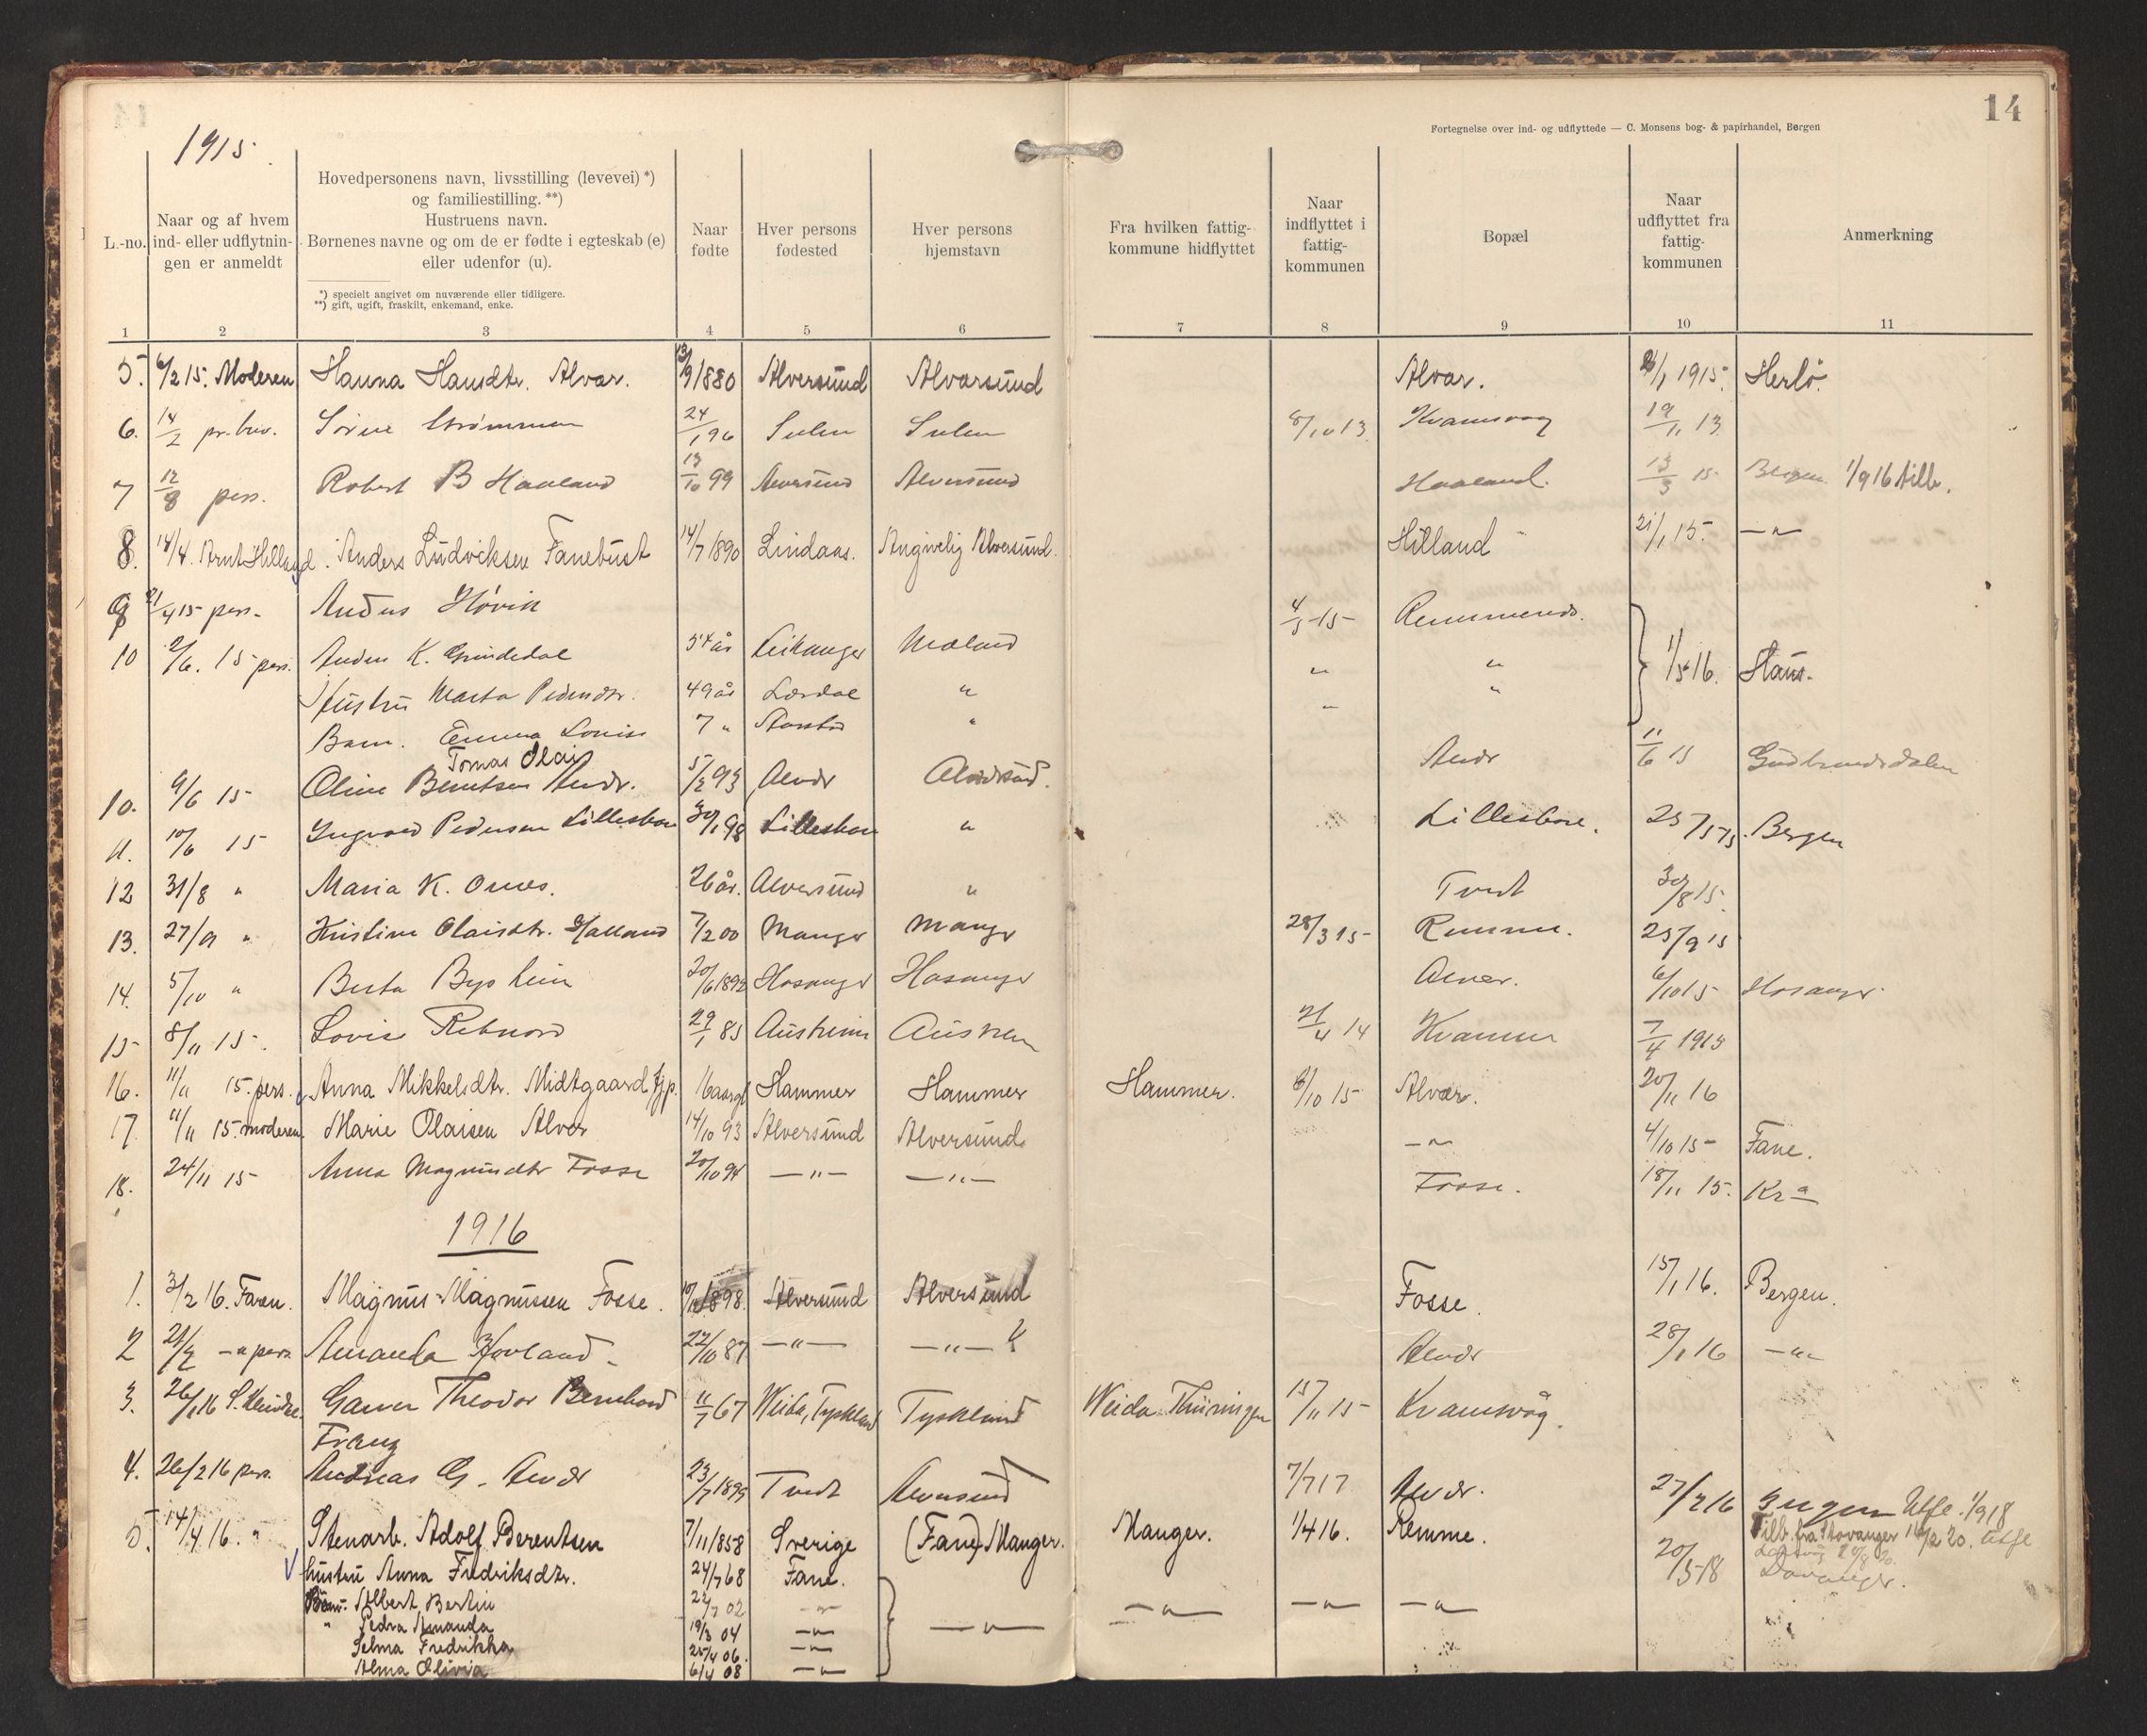 14
Fortegnelse over ind- og udflyttede — C. Monsens bog- & papirhandel, Bergen
1915.
L.-no.
Naar og af hvem
ind- eller udflytnin-
gen er anmeldt
Hovedpersonens navn, livsstilling (levevei) *)
og familiestilling. **)
Hustruens navn.
Børnenes navne og om de er fødte i egteskab (e)
eller udenfor (u).
*) specielt angivet om nuværende eller tidligere.
**) gift, ugift, fraskilt, enkemand, enke.
Naar
fødte
Hver persons
fødested
Hver persons
hjemstavn
Fra hvilken fattig-
kommune hidflyttet
Naar
indflyttet i
fattig-
kommunen
Bopæl
Naar
udflyttet fra
fattig-
kommunen
Anmerkning
1 2 3 4 5 6 7 8 9 10 11
5. 6/2 15. Moderen Hanna Hansdtr. Alvar. 13/9 1880 Alversund Alversund Alvar. 1915. Herlö.
6. 14/2 pr. brev. Sörine Strömmen 24/1 96 Sulen Sulen 8/10 13 Kvamsvaag 19/11 13
7 12/8 pers. Robert B Haaland 13/10 99 Alversund Alversund Haaland. 13/3 15 Bergen 1/9 16 tilb.
8. 14/4. Arnt Hilland. Anders Ludviksen Fanebust 14/7 1890 Lindaas. Angivelig Alversund. Hilland 21/1 15. — " —
9 21/4 15 pers. Hövik 4/5 15
10 2/6. 15 pers. K. Grindedal 54 år Leikanger " " 1/5 16. Haus.
Hustru Marta Pedersdtr. 49 år Lærdal " " "
Barn. Emma Lovise 7 " "
Tomas Olai
10. 9/6 15 Oline Berntsen Alver. 5/2 93 Alver Alversund. Alver 11/6 15 Gudbrandsdalen
11. 10/6 15 Ingvald Pedersen Lilleskare 30/1 98 Lilleskare " Lilleskare. 25/5 15 Bergen
12 31/8 " Maria K. Ones. 26 år. Alversund " Tveit 30/8 15.
13. 27/9 " Kristine Olaisdtr. Halland 7/2 00 Manger Manger 28/3 15 Remme. 25/9 15
14. 5/10 " Berta Bysheim 20/6 1892 Hosanger Hosanger Alver. 6/10 15 Hosanger
15 8/11 15. Lovise Rebnord 29/1 85 Austrheim Austrheim 21/4 14 Kvamme 7/4 1915
16. 11/11 15. pers. Anna Mikkelsdtr. Midtgaard tjp. 16 aargl Hammer Hammer Hammer. 6/10 15 Alver. 20/11 16
17 11/11 15. moderen Marie Olaisen Alver 14/10 93 Alversund Alversund — " 4/10 15 Fane.
18. 24/11 15 Anna Magnusdtr Fosse 20/10 94 — " — — " — Fosse. 18/11 15. Kr a
1916
1. 3/2 16. Faren. Magnus Magnussen Fosse. 1898. Alversund Alversund Fosse. 15/1 16. Bergen.
2 — " pers. Amanda Hovland 22/10 87 — " — — " — Alver 28/1 16 — " —
3. 26/1 16 Theodor Bernhard 11/7 67 Weida, Tyskland Tyskland Weida Thüringen 15/11 15 Kvamsvåg.
Franz
4. 26/2 16 pers. Andreas G. Alver 23/7 1899 Tveit Alversund 7/7 17 Alver. 27/2 16 Bergen Utfl. 1/9 18
5. 14/4 16. " Stenarb. Adolf Berentsen 7/11 1858 Sverige (Fane) Manger. Manger. 1/4 16. Remme. 20/5 18 Tilb. fra Stavanger 16/2 20. Utfl
hustru Anna Fredriksdtr. 24/7 68 Fane.
Børn. Albert Bertin 22/7 02 — " — — " — — " — — " — — " —
" Pedra Amanda 19/3 04 — " — — " —
Selma Fredrikka 25/4 06. — " —
Alma Olivia 6/4 08 — " —